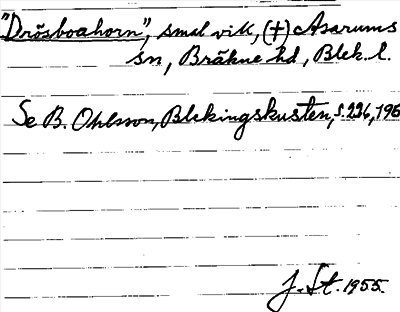 "Drösboahorn", smal vik, (+) Asarums
sn, Bräkne hd, Blek. l.
Se B. Ohlsson, Blekingskusten, s. 236, 196
J. St. 1955.